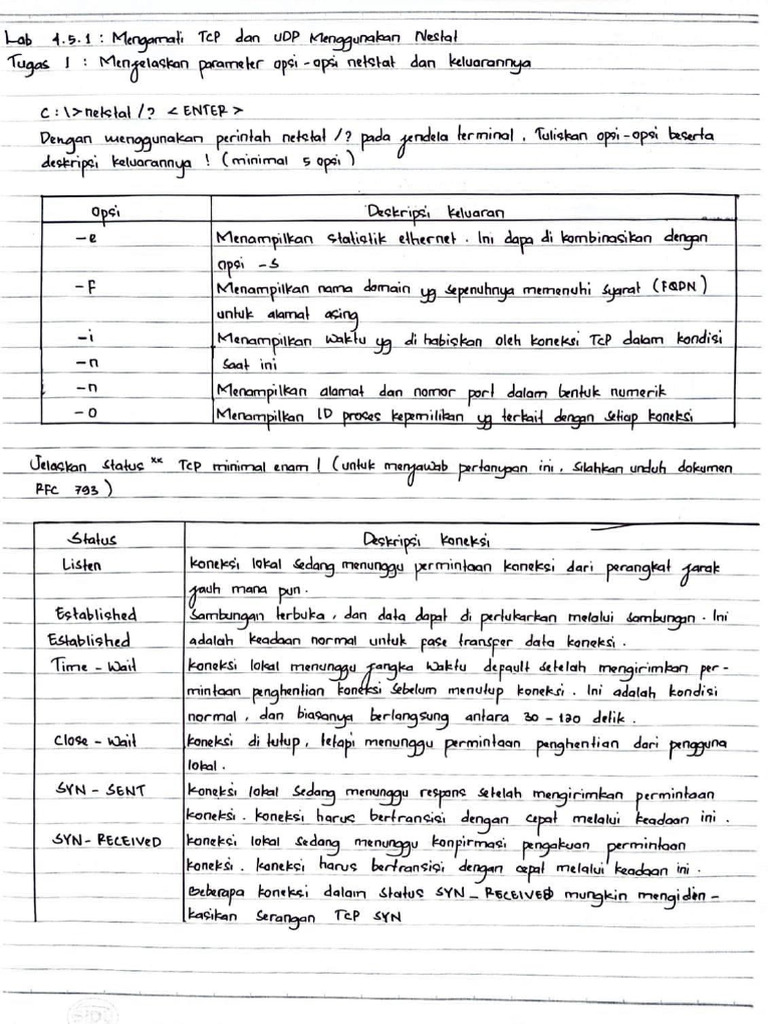 Lab 4.5.1 : Mengamati TCP dan UDP Menggunakan Nestat
Tugas 1 : Menjelaskan parameter opsi-opsi netstat dan keluarannya
C:\>netstat /? <ENTER>
Dengan menggunakan perintah netstat /? pada jendela terminal. Tuliskan opsi-opsi beserta
deskripsi keluarannya ! (minimal 5 opsi)
Opsi Deskripsi Keluaran
-e Menampilkan statistik ethernet. Ini dapa di kombinasikan dengan
opsi -s
-F Menampilkan nama domain yg sepenuhnya memenuhi syarat (FQDN)
untuk alamat asing
-i Menampilkan waktu yg di habiskan oleh koneksi TCP dalam kondisi
-n saat ini
-n Menampilkan alamat dan nomor port dalam bentuk numerik
-o Menampilkan ID proses kepemilikan yg terkait dengan setiap koneksi
Jelaskan status ** TCP minimal enam ! (untuk menjawab pertanyaan ini, silahkan unduh dokumen
RFC 793)
Status Deskripsi Koneksi
Listen koneksi lokal sedang menunggu permintaan koneksi dari perangkat jarak
jauh mana pun.
Established Sambungan terbuka, dan data dapat di pertukarkan melalui sambungan. Ini
Established adalah keadaan normal untuk fase transfer data koneksi.
Time - Wait koneksi lokal menunggu jangka waktu default setelah mengirimkan per-
mintaan penghentian koneksi sebelum menutup koneksi. Ini adalah kondisi
normal, dan biasanya berlangsung antara 30 - 120 detik.
Close - Wait koneksi di tutup, tetapi menunggu permintaan penghentian dari pengguna
lokal.
SYN - SENT koneksi lokal sedang menunggu respons setelah mengirimkan permintaan
koneksi. koneksi harus bertransisi dengan cepat melalui keadaan ini.
SYN- RECEIVED koneksi lokal sedang menunggu konpirmasi pengakuan permintaan
koneksi. koneksi harus bertransisi dengan cepat melalui keadaan ini.
Beberapa koneksi dalam status SYN - RECEIVED mungkin mengiden-
kasikan serangan TCP SYN